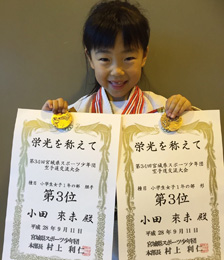 栄光を称えて
第34回宮城県スポーツ少年団
空手道交流大会
種目 小学生女子1年の部 組手
第3位
小田 來未 殿
平成28年9月11日
宮城県スポーツ少年団
本部長 村上利仁
栄光を称えて
第34回宮城県スポーツ少年団
空手道交流大会
種目 小学生女子1年の部 形
第3位
小田 來未 殿
平成28年9月11日
宮城県スポーツ少年団
本部長 村上利仁